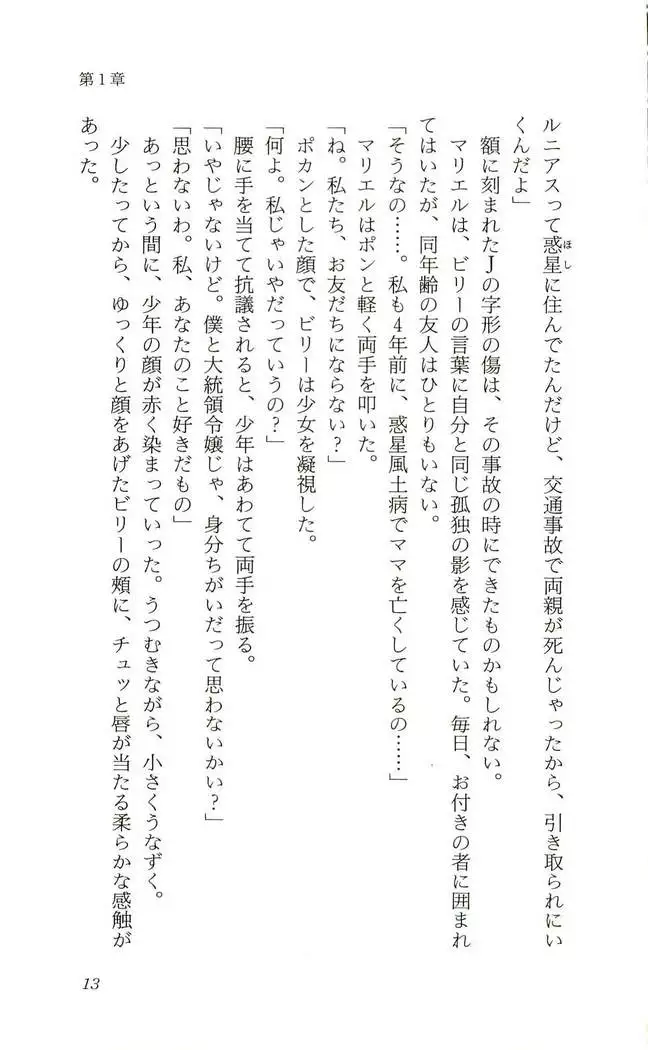 第1章
ルニアスって惑星に住んでたんだけど、交通事故で両親が死んじゃったから、引き取られにい
ほし
くんだよ」
額に刻まれたJの字形の傷は、その事故の時にできたものかもしれない。
マリエルは、ビリーの言葉に自分と同じ孤独の影を感じていた。毎日、お付きの者に囲まれ
てはいたが、同年齢の友人はひとりもいない。
「そうなの……。私も4年前に、惑星風土病でママを亡くしているの……」
マリエルはポンと軽く両手を叩いた。
「ね。私たち、お友だちにならない?」
ポカンとした顔で、ビリーは少女を凝視した。
「何よ。私じゃいやだっていうの?」
腰に手を当てて抗議されると、少年はあわてて両手を振る。
「いやじゃないけど。僕と大統領令嬢じゃ、身分ちがいだって思わないかい?」
「思わないわ。私、あなたのこと好きだもの」
あっという間に、少年の顔が赤く染まっていった。うつむきながら、小さくうなずく。
少したってから、ゆっくりと顔をあげたビリーの頰に、チュッと唇が当たる柔らかな感触が
あった。
13